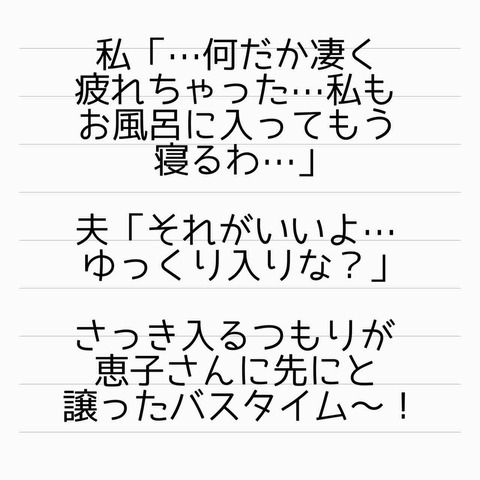 私「…何だか凄く
疲れちゃった…私も
お風呂に入ってもう
寝るわ…」
夫「それがいいよ…
ゆっくり入りな？」
さっき入るつもりが
恵子さんに先にと
譲ったバスタイム〜！